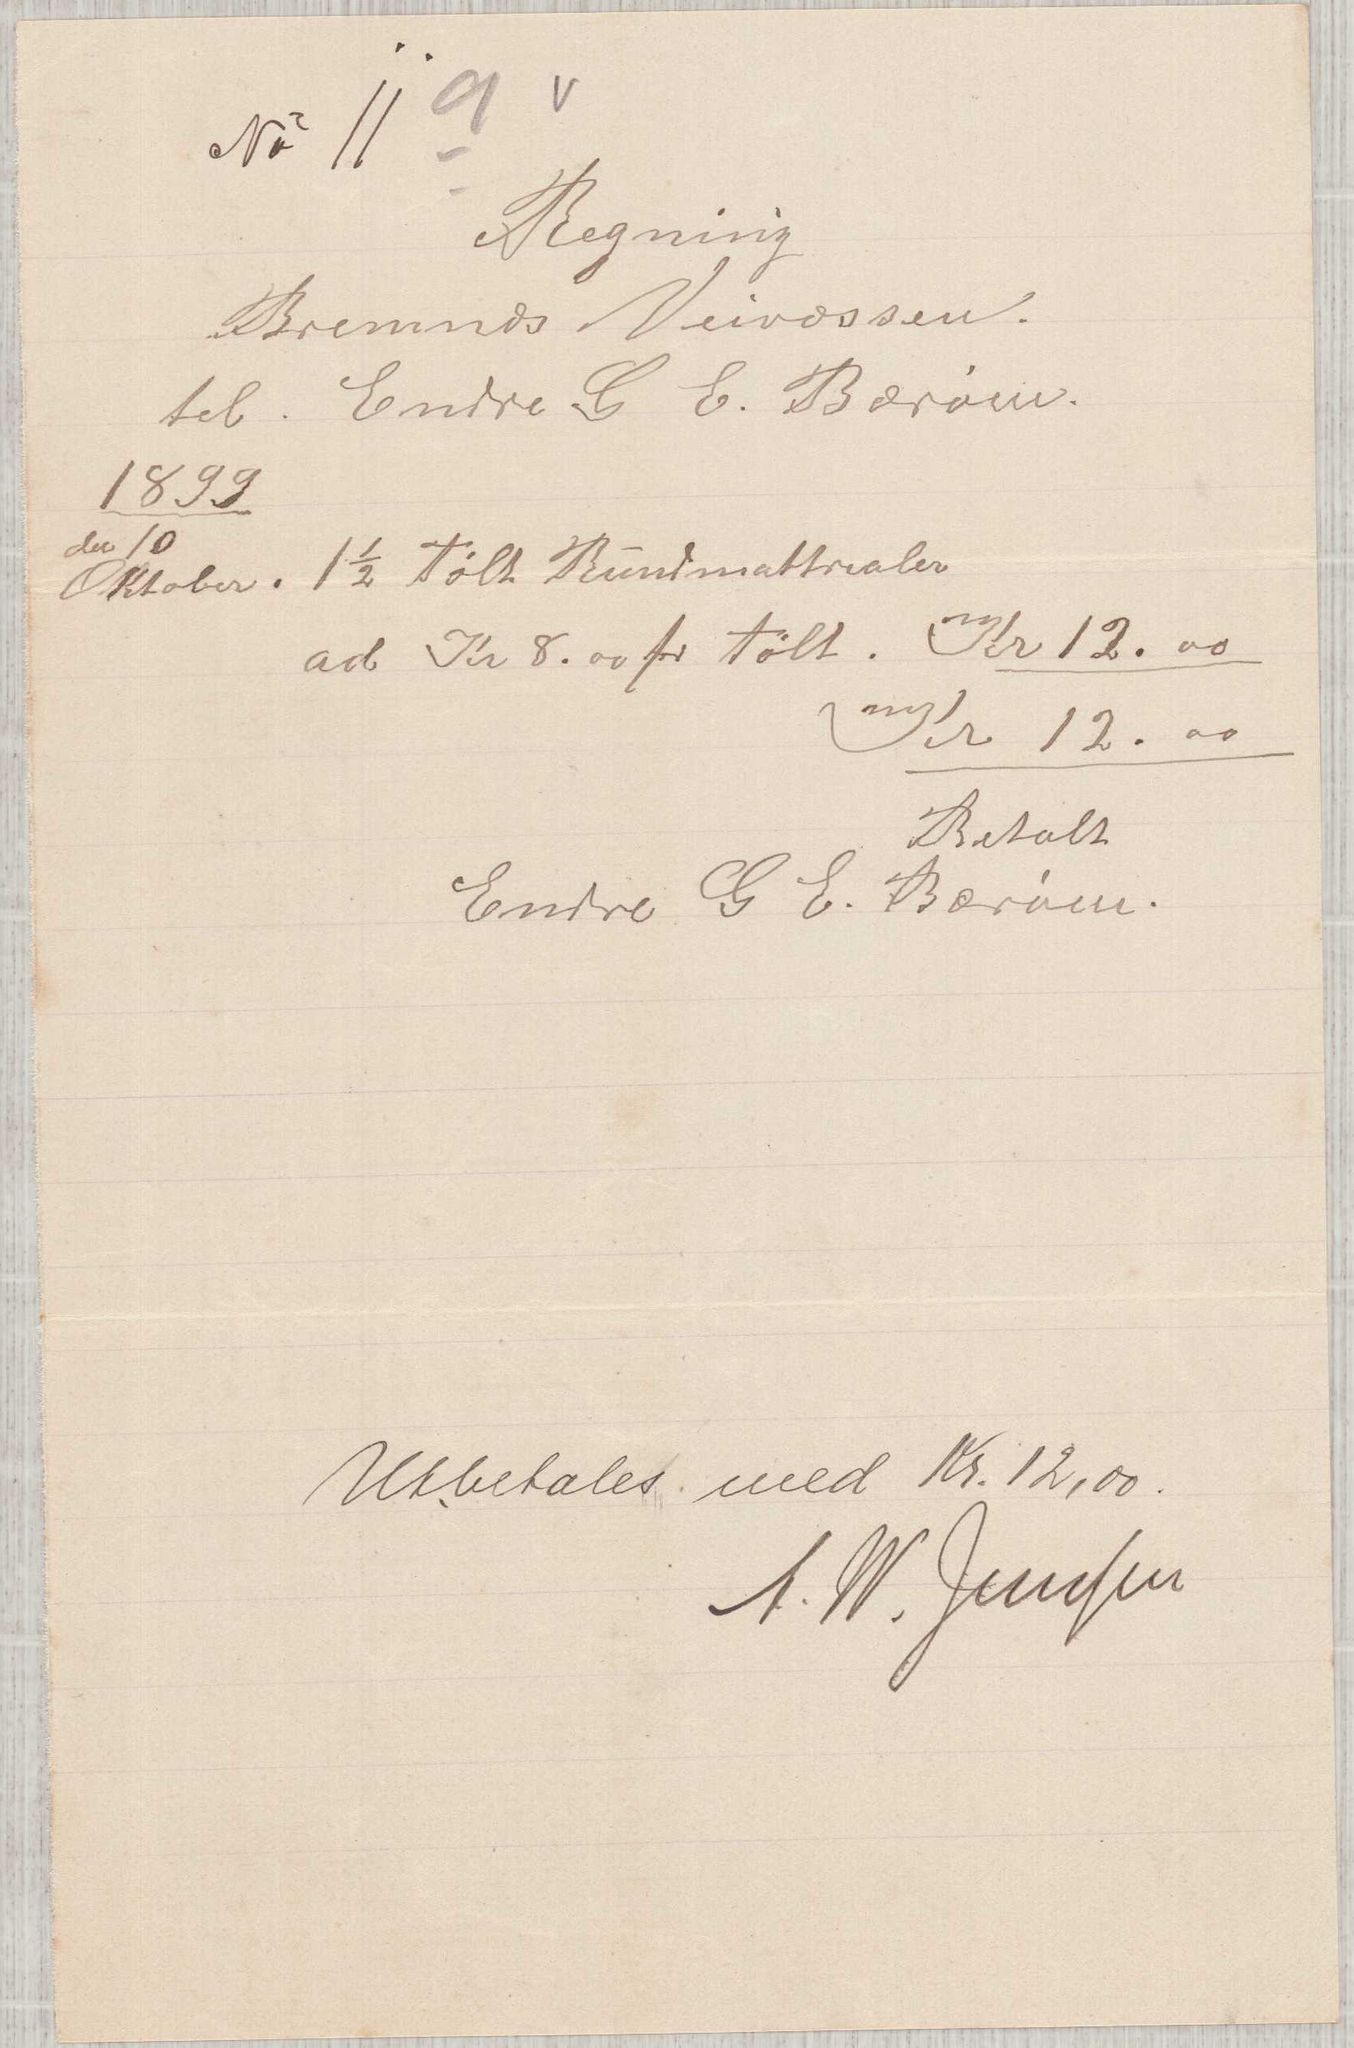 No 11 9 v
Regning
Bremnæs Veivæssen.
tel. Endre G E. Bærøen.
1899
den 10
Oktober. 1½ Tölt Rundmattrealer
ad Kr 8.00 pr tölt. Kr 12.00
Kr 12.00
Betalt
Endre G E. Bærøen.
Utbetales med Kr. 12,00.
A. W. Jensen